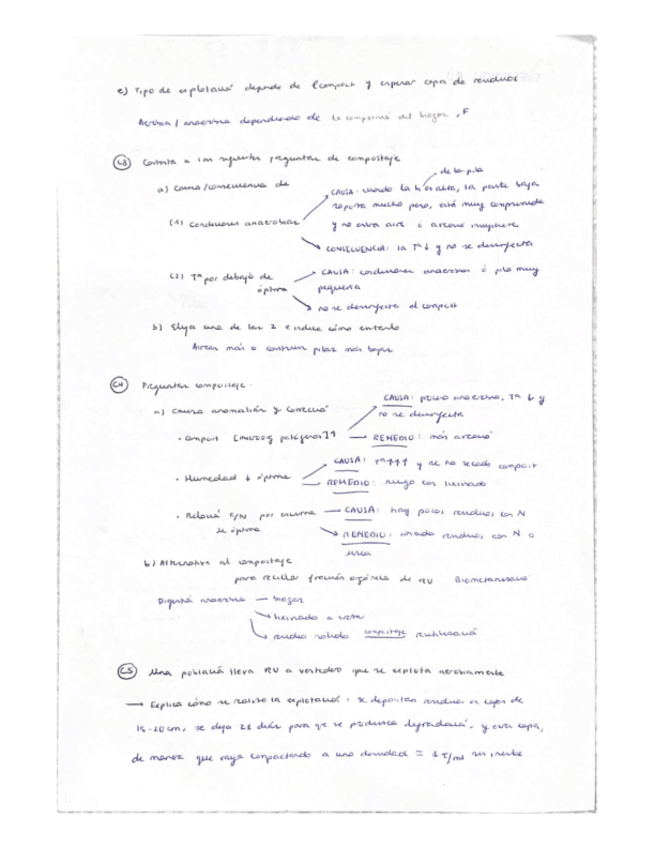 e) Tipo de explotación depende de compact y espesor capa de residuos
Aerobia / anaerobia dependiendo de la composición del biogas, F
C3 Contesta a las siguientes preguntas de compostaje
de la pila
a) Causa/consecuencia de
CAUSA: cuando la h es alta, la parte baja
soporta mucho peso, está muy comprimida
(1) Condiciones anaerobias
y no entra aire ó aireación insuficiente
CONSECUENCIA: la Tª ↓ y no se desinfecta
(2) Tª por debajo de óptima
CAUSA: condiciones anaerobias ó pila muy
pequeña
no se desinfecta el compost
b) Elija una de las 2 e indica cómo evitarlo
Airear más o construir pilas más bajas
C4 Preguntas compostaje.
a) Causa anomalías y corrección
CAUSA: proceso anaerobio, Tª ↓ y
no se desinfecta
• compost [microorg patógenos]↑
REMEDIO: más aireación
• Humedad ↓ óptima
CAUSA: Tª↑↑↑ y se ha secado compost
REMEDIO: riego con lixiviado
• Relación C/N por encima
de óptima
CAUSA: hay pocos residuos con N
REMEDIO: añado residuos con N o
urea
b) Alternativa al compostaje
para reciclar fracción orgánica de RU Biometanización
Digestión anaerobia — biogas
lixiviado a
residuo sólido compostaje reutilización
C5 Una población lleva RU a vertedero que se explota aerobiamente
→ Explica cómo se realiza la explotación. se depositan residuos en capas de
15-20cm, se deja 21 días para que se produzca degradación, y otra capa,
de manera que vaya compactando a una densidad = 1 T/m3